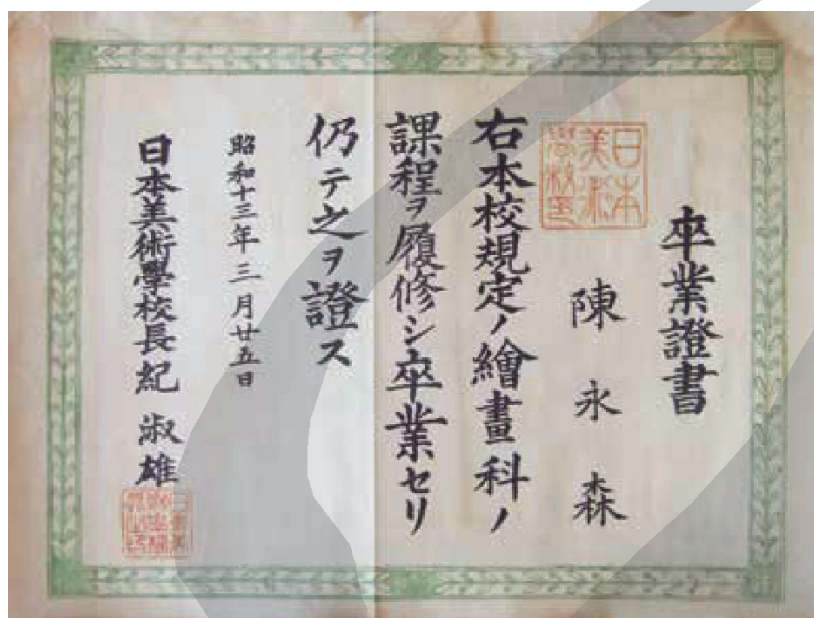 卒業證書
陳永森
日本
美術
學校印
右本校規定ノ繪畫科ノ
課程ヲ履修シ卒業セリ
仍テ之ヲ證ス
昭和十三年三月廿五日
日本美術學校長紀淑雄